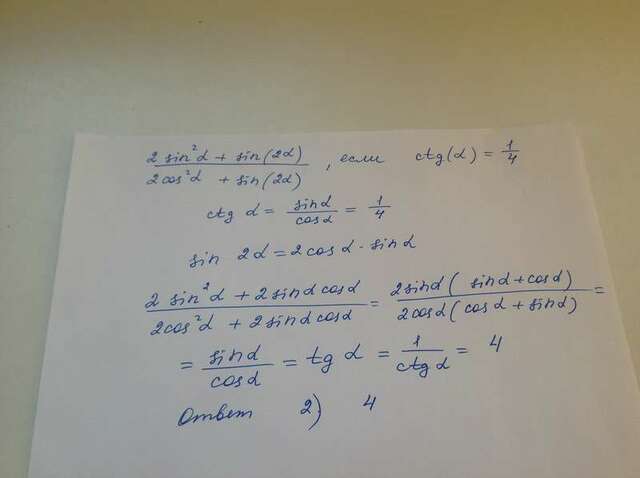 (2 sin²α + sin(2α))/(2cos²α + sin(2α)), если ctg(α) = 1/4
ctg α = sinα/cosα = 1/4
sin 2α = 2cosα · sinα
(2 sin²α + 2sinα cosα)/(2cos²α + 2sinα cosα) = 2sinα( sinα+cosα)/2cosα( cosα + sinα) =
= sinα/cosα = tg α = 1/ctgα = 4
ответ 2) 4